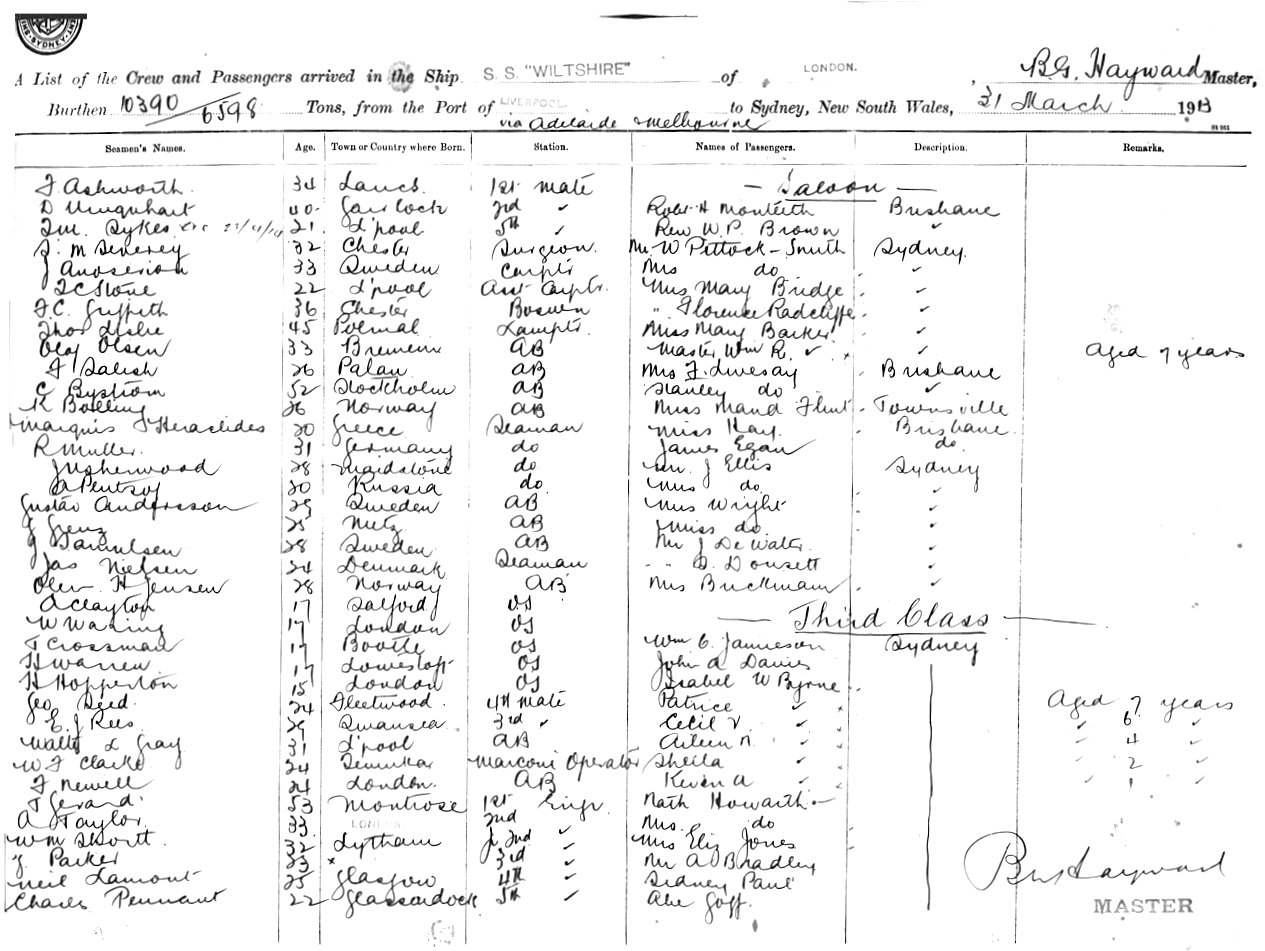 SYDNEY
A List of the Crew and Passengers arrived in the Ship S. S. "WILTSHIRE" of LONDON. , B.G. Hayward Master,
Burthen 10390/6598 Tons, from the Port of LIVERPOOL to Sydney, New South Wales, 31 March 1913
via Adelaide & Melbourne
Seamen's Names. Age. Town or Country where Born. Station. Names of Passengers. Description. Remarks.
F Ashworth 34 Lancs. 1st mate — Saloon —
D Urquhart 40 Gairloch 2nd ✓ Robt H Monteith Brisbane
Sykes 21 L'pool 5th ✓ Rev W.P. Brown ✓
32 Chester Surgeon. Mr W Pittock-Smith Sydney
J 33 Sweden Carptr Mrs do ✓
Stone 22 L'pool Asst Carptr. Miss Mary Bridge ✓
F.C. Griffith 36 Chester Bosun " Florence Radcliffe ✓
Thos Leslie 45 Lamptr. Miss Mary Barker ✓
Olaf Olsen 33 AB Master Wm R. ✓ ✓ Aged 7 years
F 26 AB Mrs F. Livesay Brisbane
C Bystrom 52 Stockholm AB Stanley do ✓
K Bolling 26 Norway AB Miss Maud Flint Townsville
Marquis Heraclides 20 Greece Seaman Miss Hay. Brisbane
R Muller. 31 Germany do James Egan do.
J Usherwood 28 Maidstone do Mr. J Ellis Sydney
20 Russia do. Mrs do. ✓
Gustav Andersson 29 Sweden AB Mrs Wright ✓
J 25 Metz AB Miss do. ✓
28 Sweden AB Mr J De Water ✓
Jas Nielsen 24 Denmark Seaman " Dousett ✓
H Jensen 28 Norway AB Mrs Brickmann ✓
A Clayton 17 Salford OS — Third Class —
W Waring 17 London OS
T Crossman 17 Bootle OS Wm C. Jamieson Sydney
H Warren 17 Lowestoft OS John A Davies
H Hopperton 15 London OS Isabel W Byrne
Geo Reed 24 Fleetwood 4th mate Patrice ✓ Aged 7 years
E. J Rees 29 Swansea 3rd " Cecil V. ✓ " 6 "
Walter L Gray 31 L'pool AB Aileen M. ✓ " 4 "
W F Clarke 24 Marconi Operator Sheila ✓ " 2 "
F Newell 24 London AB Keven A ✓ " 1 "
T Gerard 53 Montrose 1st Engr. Nath Howarth
A Taylor 33 LONDON 2nd ✓ Mrs. do
Wm Shortt. 32 Lytham Jr 2nd ✓ Mrs Eliz Jones
J. Parker 33 " 3rd ✓ Mr A Bradley
Neil Lamont 25 Glasgow 4th ✓ Sidney Paul
Charles Pennant 22 5th ✓ Abe Goff.
Hayward
MASTER